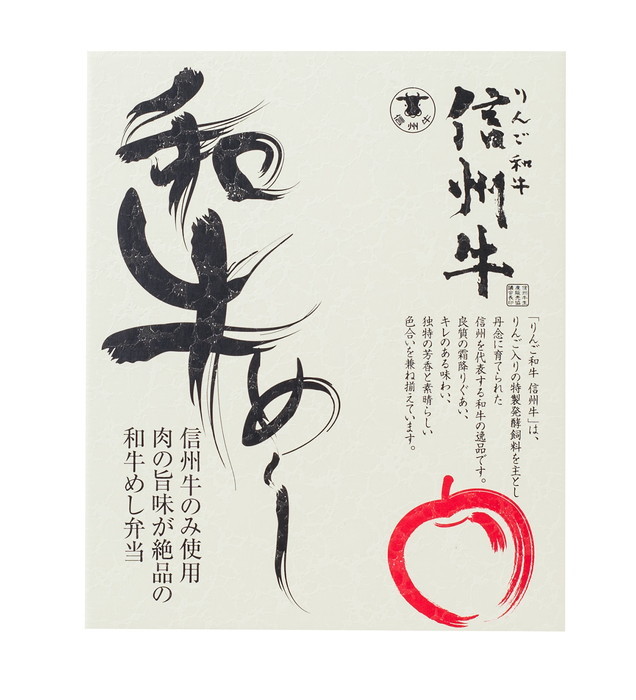 りんご和牛
信州牛
信州牛
「りんご和牛 信州牛」は、
りんご入りの特製発酵飼料を主とし
丹念に育てられた
信州を代表する和牛の逸品です。
良質の霜降りぐあい、
キレのある味わい、
独特の芳香と素晴らしい
色合いを兼ね揃えています。
和牛めし
信州牛のみ使用
肉の旨味が絶品の
和牛めし弁当